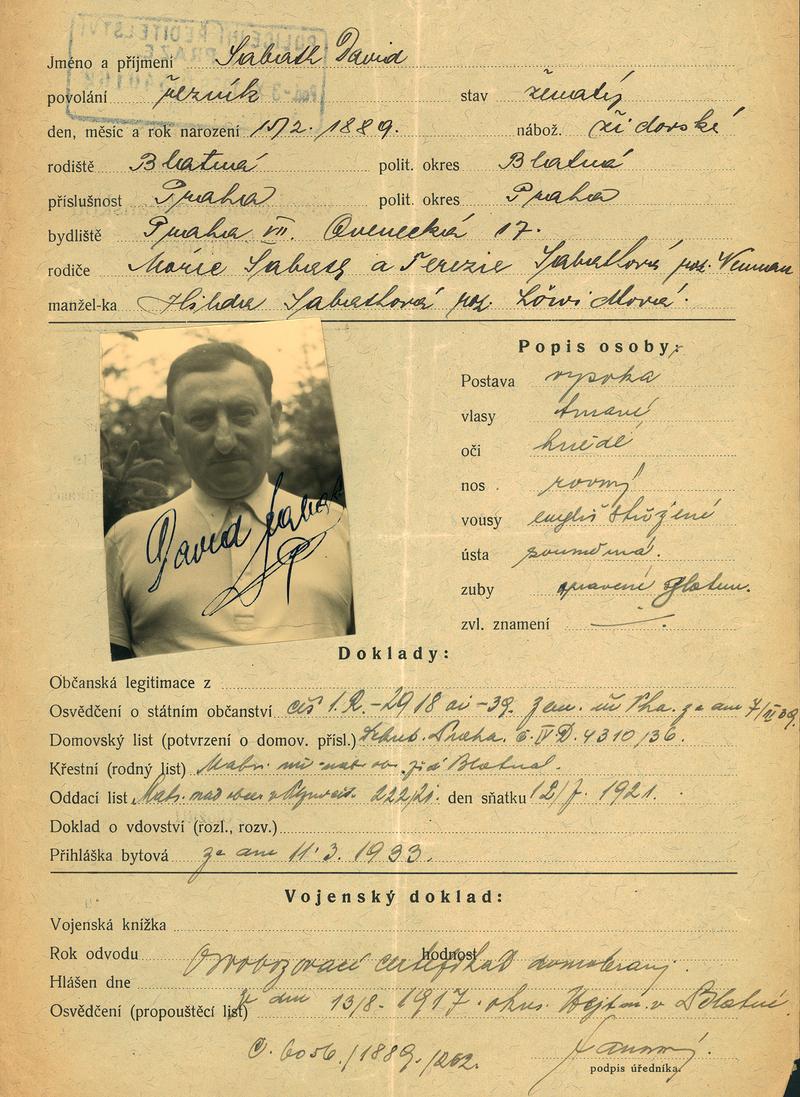 Jméno a příjmení Sabath David
povolání řezník stav ženatý
den, měsíc a rok narození 15/2. 1889. nábož. židovské
rodiště Blatná polit. okres Blatná
příslušnost Praha polit. okres Praha
bydliště Praha VII. Ovenecká 17.
rodiče Móric Sabath a Terezie Sabathová roz. Neuman
manžel-ka Hilda Sabathová roz.
Popis osoby:
Postava vysoká
vlasy tmavé
oči hnědé
nos rovný
vousy englis střižené
ústa souměrná.
zuby spravené
zvl. znamení
David Sabat
Doklady:
Občanská legitimace z
Osvědčení o státním občanství čís 1.R.-2918 ai-39. Zem. úř. Pha. ze dne
Domovský list (potvrzení o domov. přísl.) Praha. č. IV D. 4310/36.
Křestní (rodný list) Matr. žid Blatná.
Oddací list Matr. nad obce v 222/21. den sňatku 12/7. 1921.
Doklad o vdovství (rozl., rozv.)
Přihláška bytová ze dne 11.3. 1933.
Vojenský doklad:
Vojenská knížka
Rok odvodu hodnost
Osvobozovací certifikát domobrany.
Hlášen dne
Osvědčení (propouštěcí list) ze dne 13/8. 1917. okres. Hejtm. v Blatné.
/1889./
podpis úředníka.